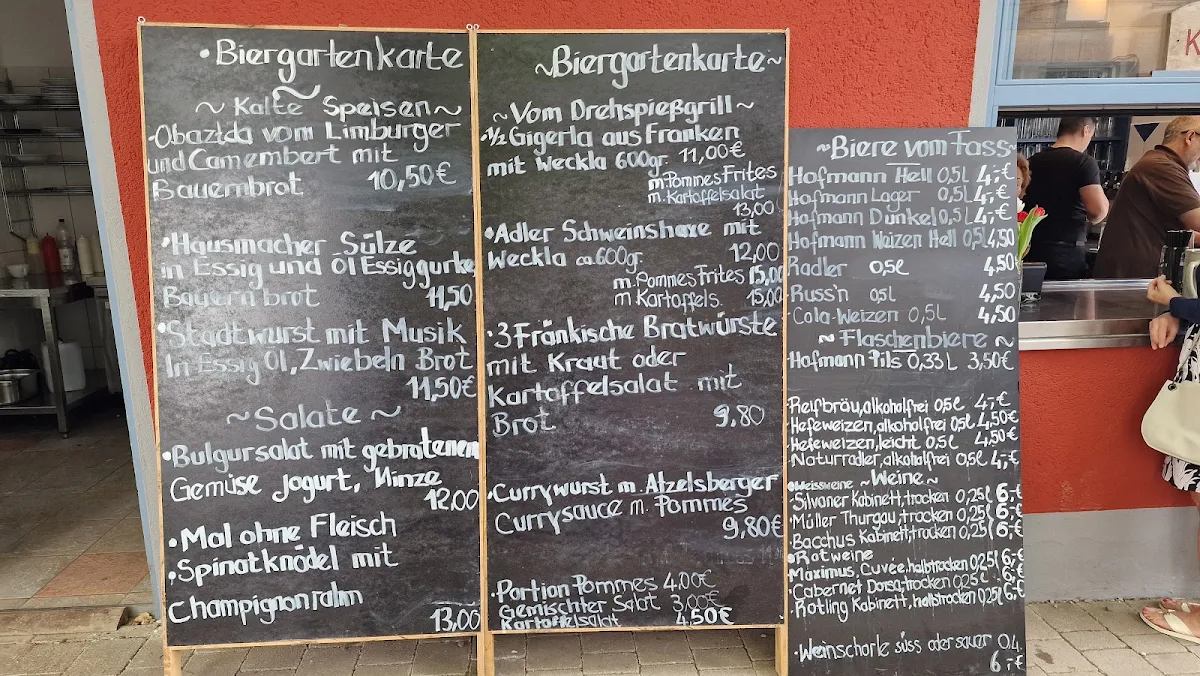 • Biergartenkarte
~ Kalte Speisen ~
• Obazda vom Limburger
und Camembert mit
Bauernbrot 10,50€
• Hausmacher Sülze
in Essig und Öl Essiggurke
Bauern brot 11,50
• Stadtwurst mit Musik
In Essig Öl, Zwiebeln Brot
11,50€
~ Salate ~
• Bulgursalat mit gebratenen
Gemüse Jogurt, Minze
12,00
• Mal ohne Fleisch
• Spinatknödel mit
Champignonrahm
13,00
~Biergartenkarte~
~ Vom Drehspießgrill ~
• 1/2 Gigerla aus Franken
mit Weckla 600gr. 11,00€
m. Pommes Frites
m. Kartoffelsalat
13,00
• Adler Schweinshaxe mit
Weckla ca 600gr. 12,00
m. Pommes Frites 15,00
m Kartoffels. 15,00
• 3 Fränkische Bratwürste
mit Kraut oder
Kartoffelsalat mit
Brot 9,80
• Currywurst m. Atzelsberger
Currysauce m. Pommes
9,80€
• Portion Pommes 4,00€
Gemischter Salat 3,00€
Kartoffelsalat 4,50€
~Biere vom Fass
Hofmann Hell 0,5L 4,-€
Hofmann Lager 0,5L 4,-€
Hofmann Dunkel 0,5L 4,-€
Hofmann Weizen Hell 0,5L 4,50
Radler 0,5l 4,50€
• Russ'n 0,5L 4,50
• Cola-Weizen 0,5L 4,50
~ Flaschenbiere ~
Hofmann Pils 0,33L 3,50€
Reifbräu, alkoholfrei 0,5l 4,-€
• Hefeweizen, alkoholfrei 0,5L 4,50€
• Hefeweizen, leicht. 0,5l 4,50€
• Naturradler, alkoholfrei 0,5l 4,-€
~Weine~
• Weissweine
• Silvaner Kabinett, trocken 0,25l 6,-€
• Müller Thurgau, trocken 0,25l 6,-€
• Bacchus Kabinett, trocken 0,25l 6,-€
• Rotweine
Maximus, Cuvée, halbtrocken 0,25l 6,-€
• Cabernet Dorsa, trocken 0,25l 6,-€
• Rotling Kabinett, halbtrocken 0,25l 6,-€
• Weinschorle süss oder sauer 0,4
6,-€
K